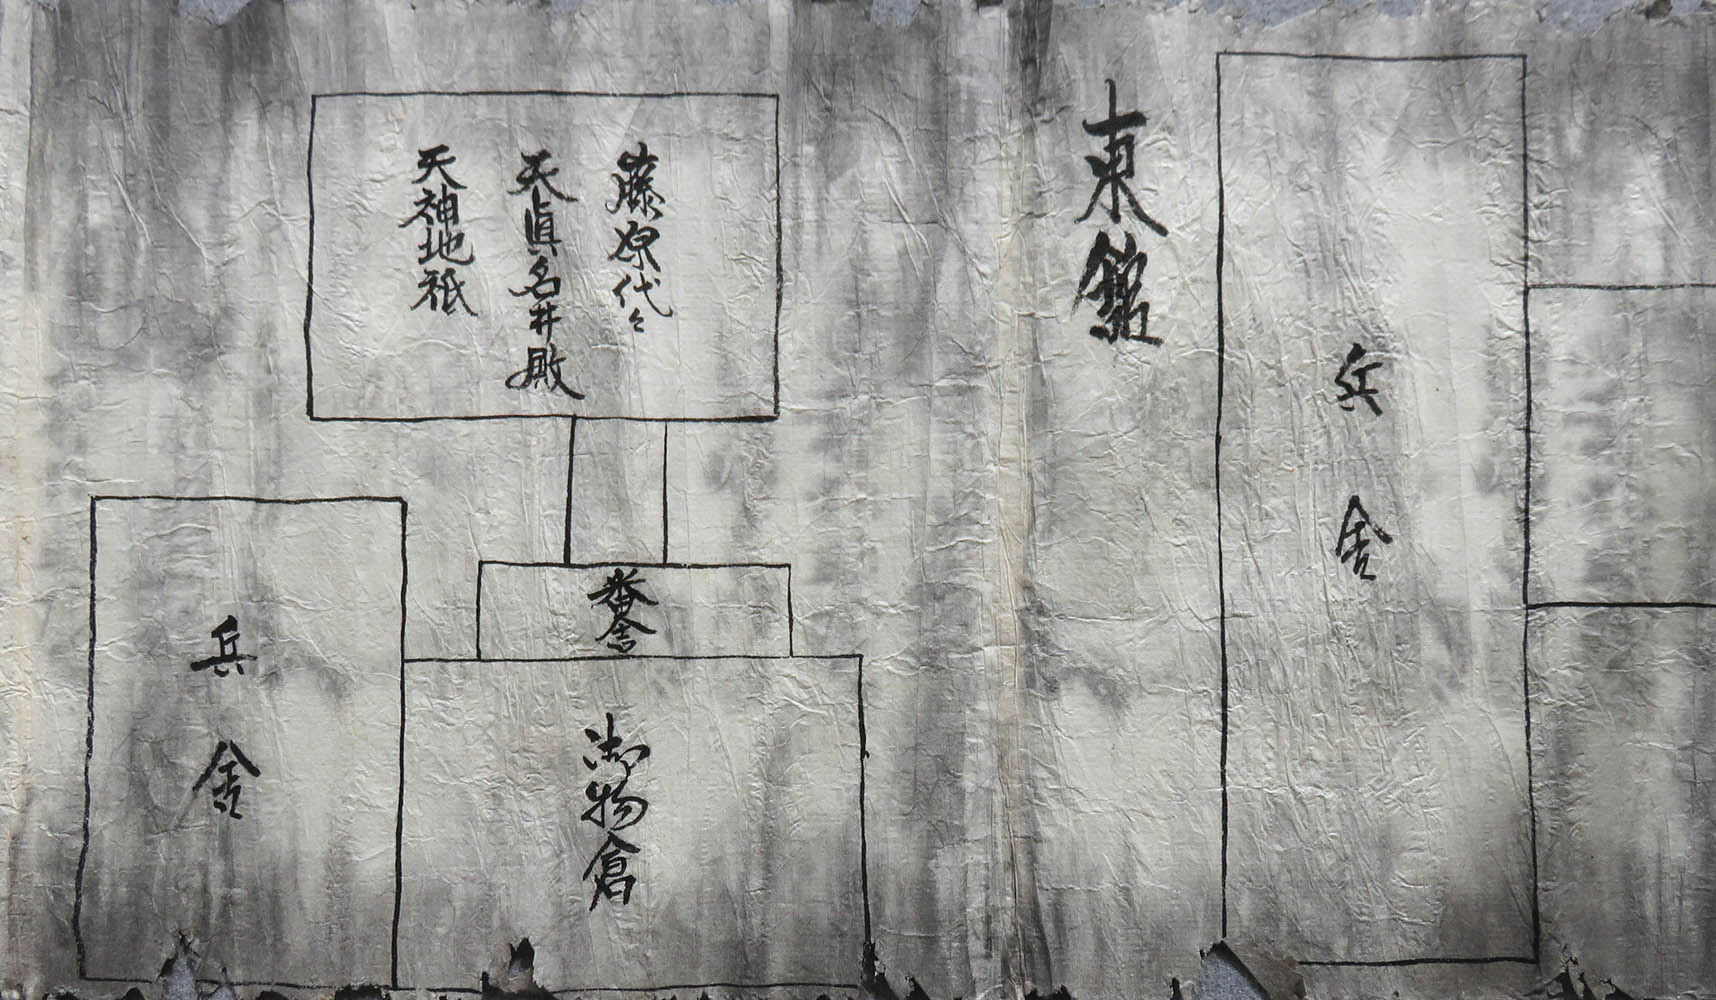 兵舎
東鑑
藤原代々
天眞名井殿
天神地祇
番舎
御物倉
兵舎